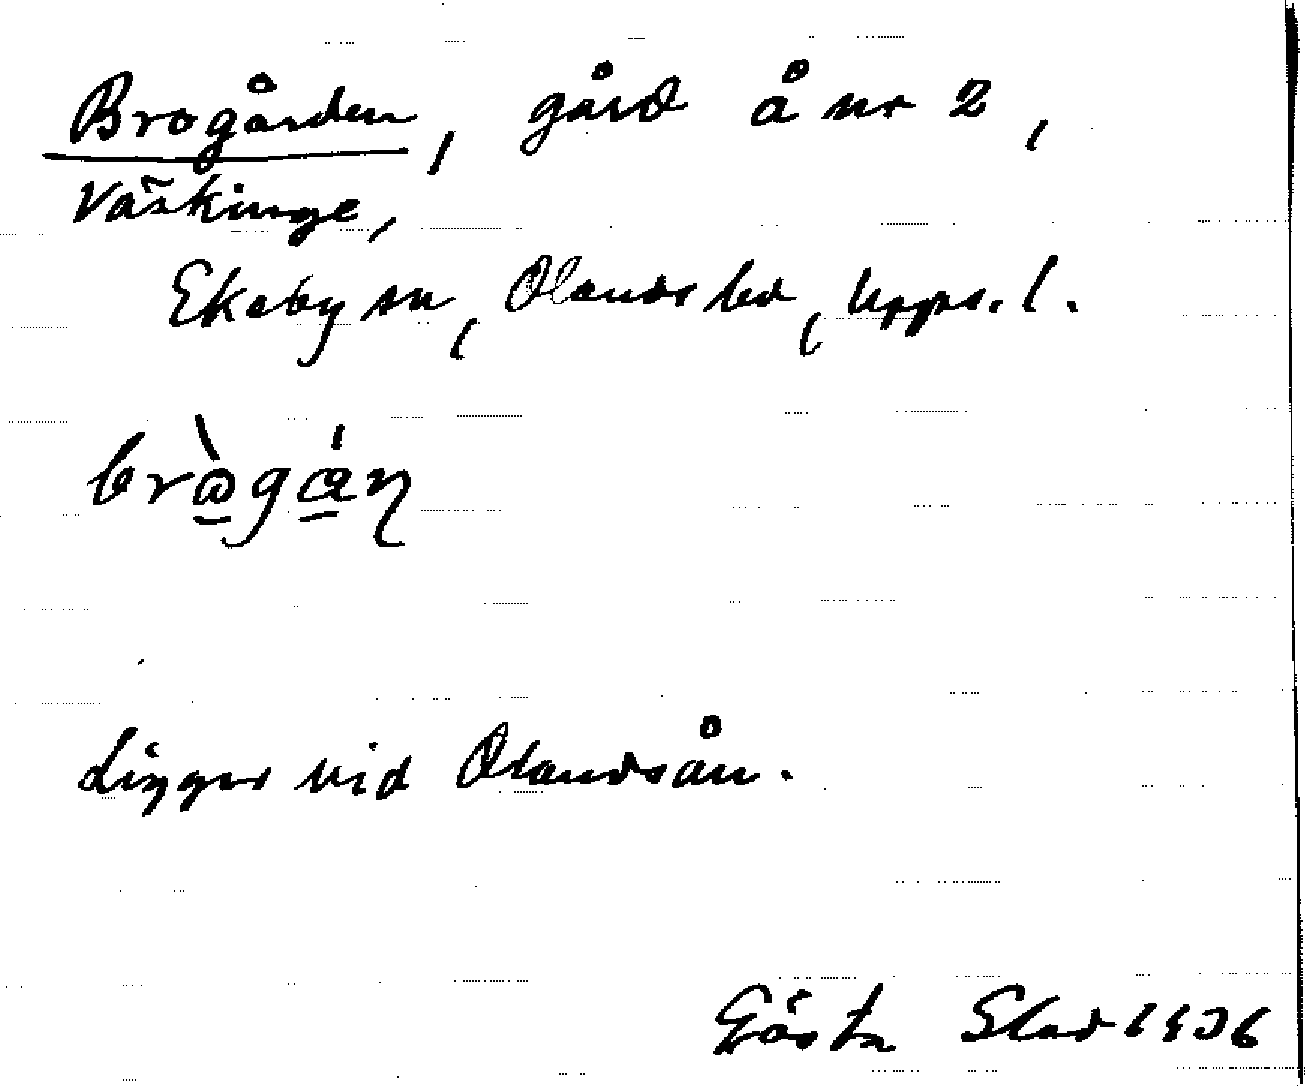 Brogården, gård å nr 2,
Väskinge,
Ekeby sn, Olands hd, Upps. l.
Ligger vid Olandsån.
Gösta 1936